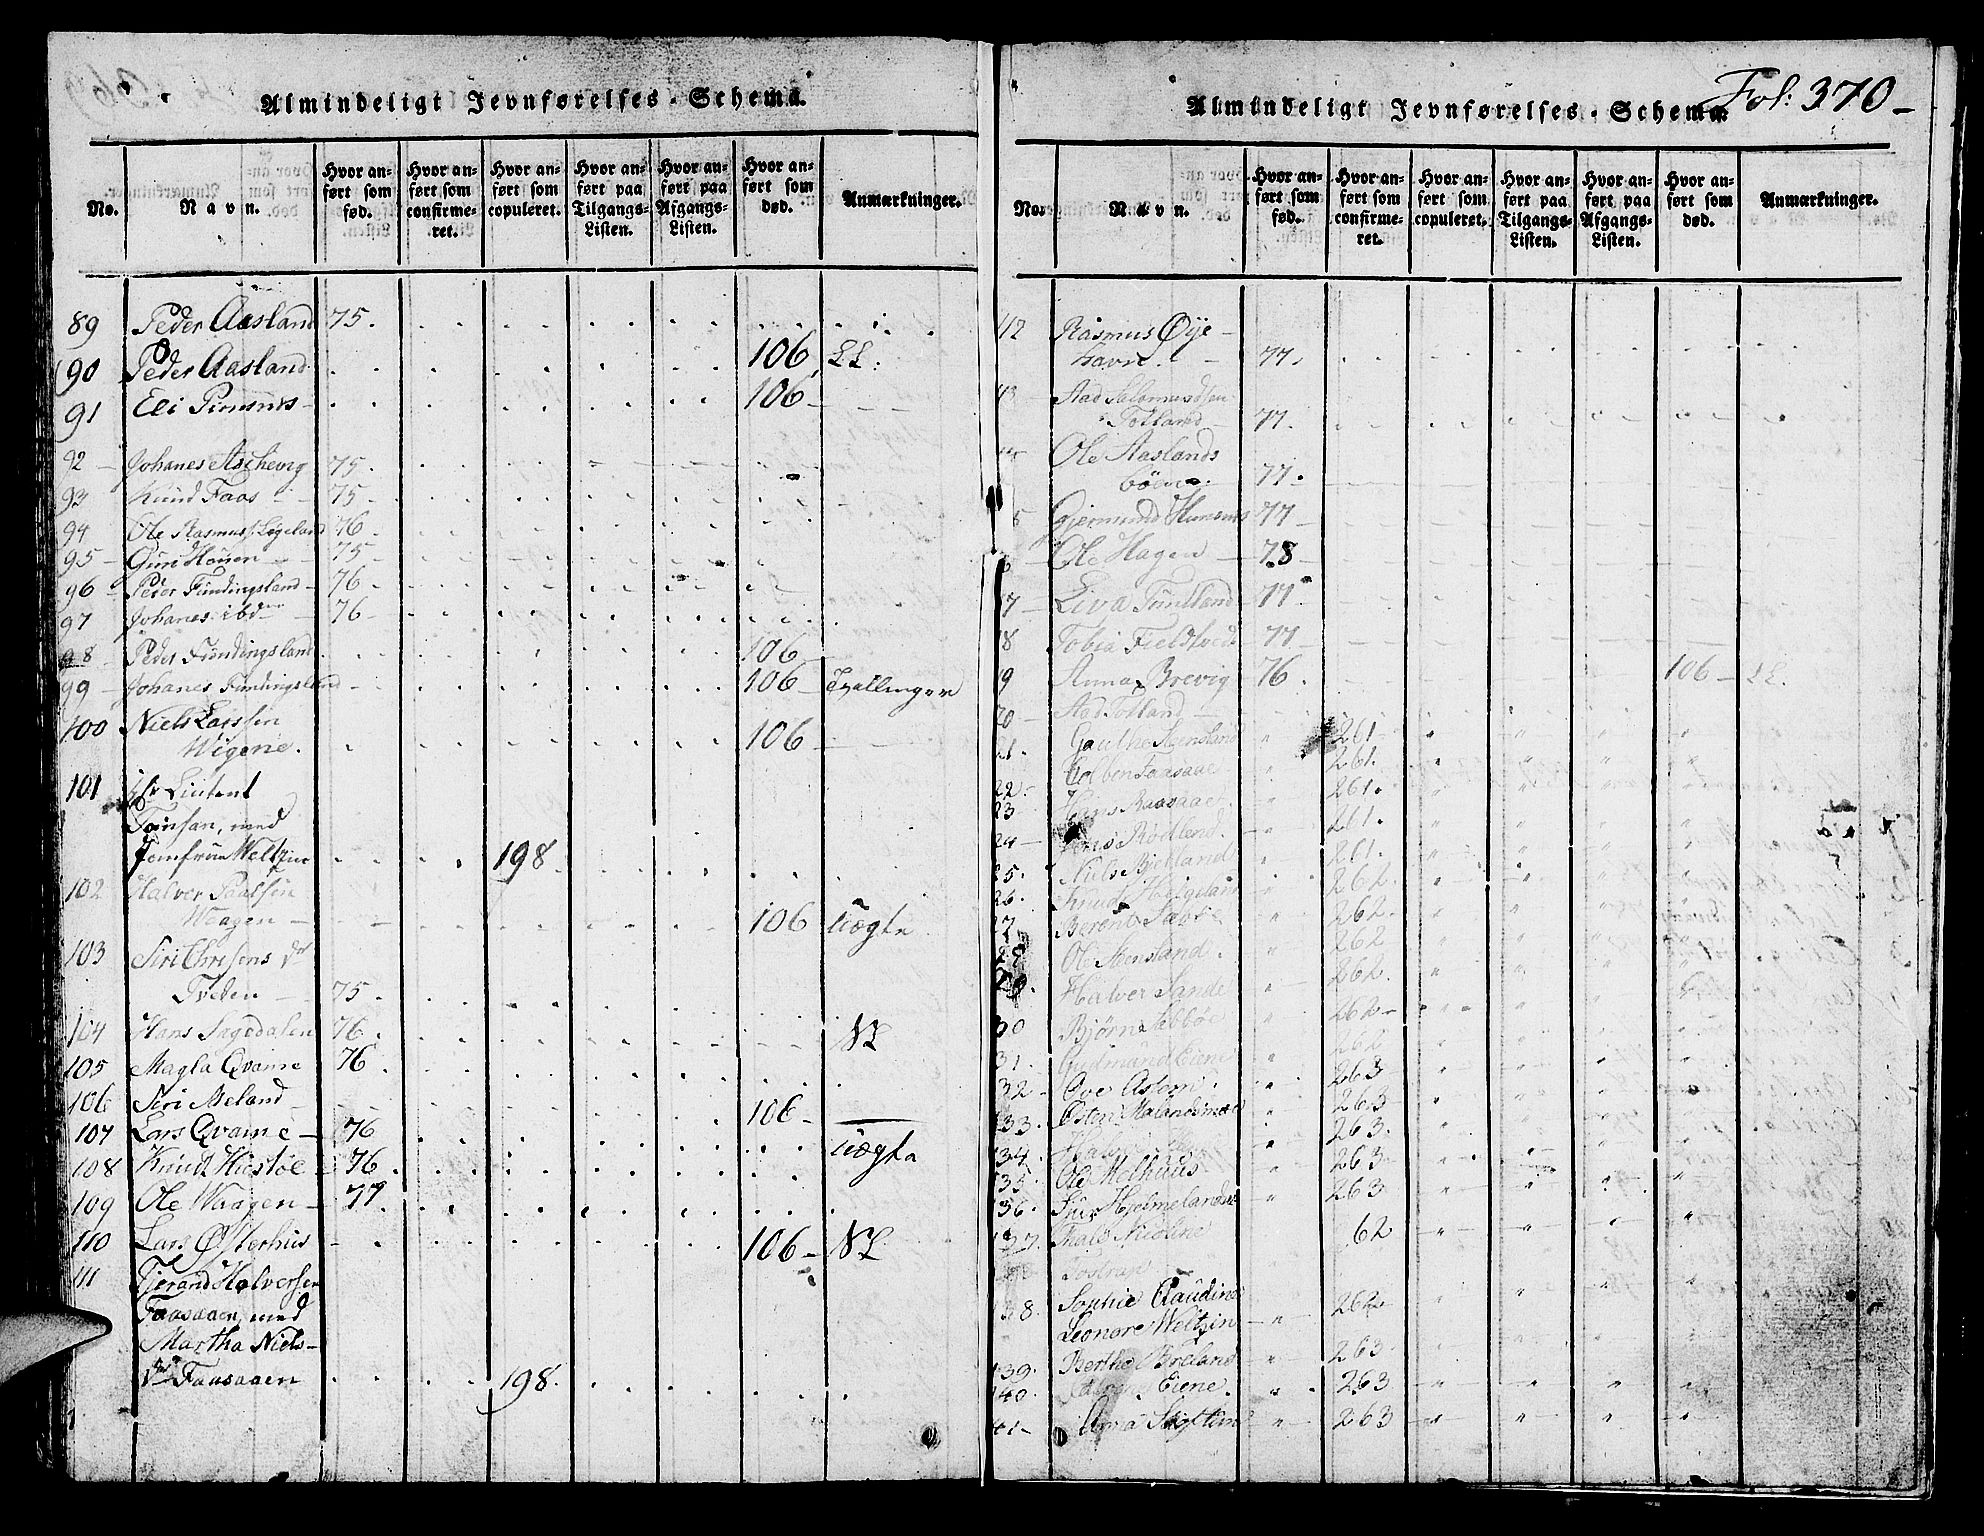 Almindeligt Jevnførelses-Schema.
No.
Navn.
Hvor anført som fød.
Hvor anført som confirmeret.
Hvor anført som copuleret.
Hvor anført paa Tilgangs-Listen.
Hvor anført paa Afgangs-Listen.
Hvor anført som død.
Anmærkninger.
89 Peder Aasland 75.
90 Peder Aasland 106 LL.
91 Eli 106
92 Johanes Aschevig 75.
93 Knud Faas 75
94 Ole Rasmuss: Løgeland 76
95 Guri Houen 75
96 Peder Fundingsland 76
97 Johanes ibd 76
98 Peder Fundingsland 106
99 Johanes Fundingsland 106 Tvillinger
100 Niels Larssen
Wigene. 106
101 Hr Liutent
Tønsan, med
Jomfrue Weltzin 198.
102 Halver Paalsen
Waagen 106 Uægte
103 Siri Chrisens Dr
Tveden 75
104 Hans Sagedalen 76 NL
105 Magla Qvame 76
106 Siri Meland 106
107 Lars Qvame 76 Uægte
108 Knud Hiestøe 76
109 Ole Waagen 77
110 Lars Østerhus 106 NL
111 Tjerand Halversen
Faasaaen, med
Martha Niels
Dr Faasaaen 198.
Fol: 370
Almindeligt Jevnførelses-Schema.
No.
Navn.
Hvor anført som fød.
Hvor anført som confirmeret.
Hvor anført som copuleret.
Hvor anført paa Tilgangs-Listen.
Hvor anført paa Afgangs-Listen.
Hvor anført som død.
Anmærkninger.
12 Rasmus Øye
havn. 77.
13 Aad Salomundsen
Totland 77.
Ole Aaslands
bøen. 77.
5 Gjermund Hunsnes 77
6 Ole Hagen 78
17 Liva Tuntland 77
18 Tobia Fieldtved 77
19 Anna Brevig 76. 106 LL.
20 Aad Totland
21. Gauthe Steensland 261
22. Colben Faasaae 261.
23 Hans Raasaae 261.
24 Jens Rødland. 261.
25. Niels Birkland 261.
26. Knud Helgeland 262
27. Berent Sæbøe 262
28 Ole Stensland. 262
29. Halver Sande 262.
30 Bjørn Sebbøe 262
31. Gudmund Eiene 262
32 Ove Astem 263
133. Østen Malandsmoe 263
134. Halver 263.
135. Ole Melhuus 263
136. Siur Hjelmelandsøe 263
137. Thale Nicoline 62
Tostrup
138. Sophie Claudine
Leonore Weltzin 262
139. Berthe Breland 263
140. Eiene. 263
41 Anna 263